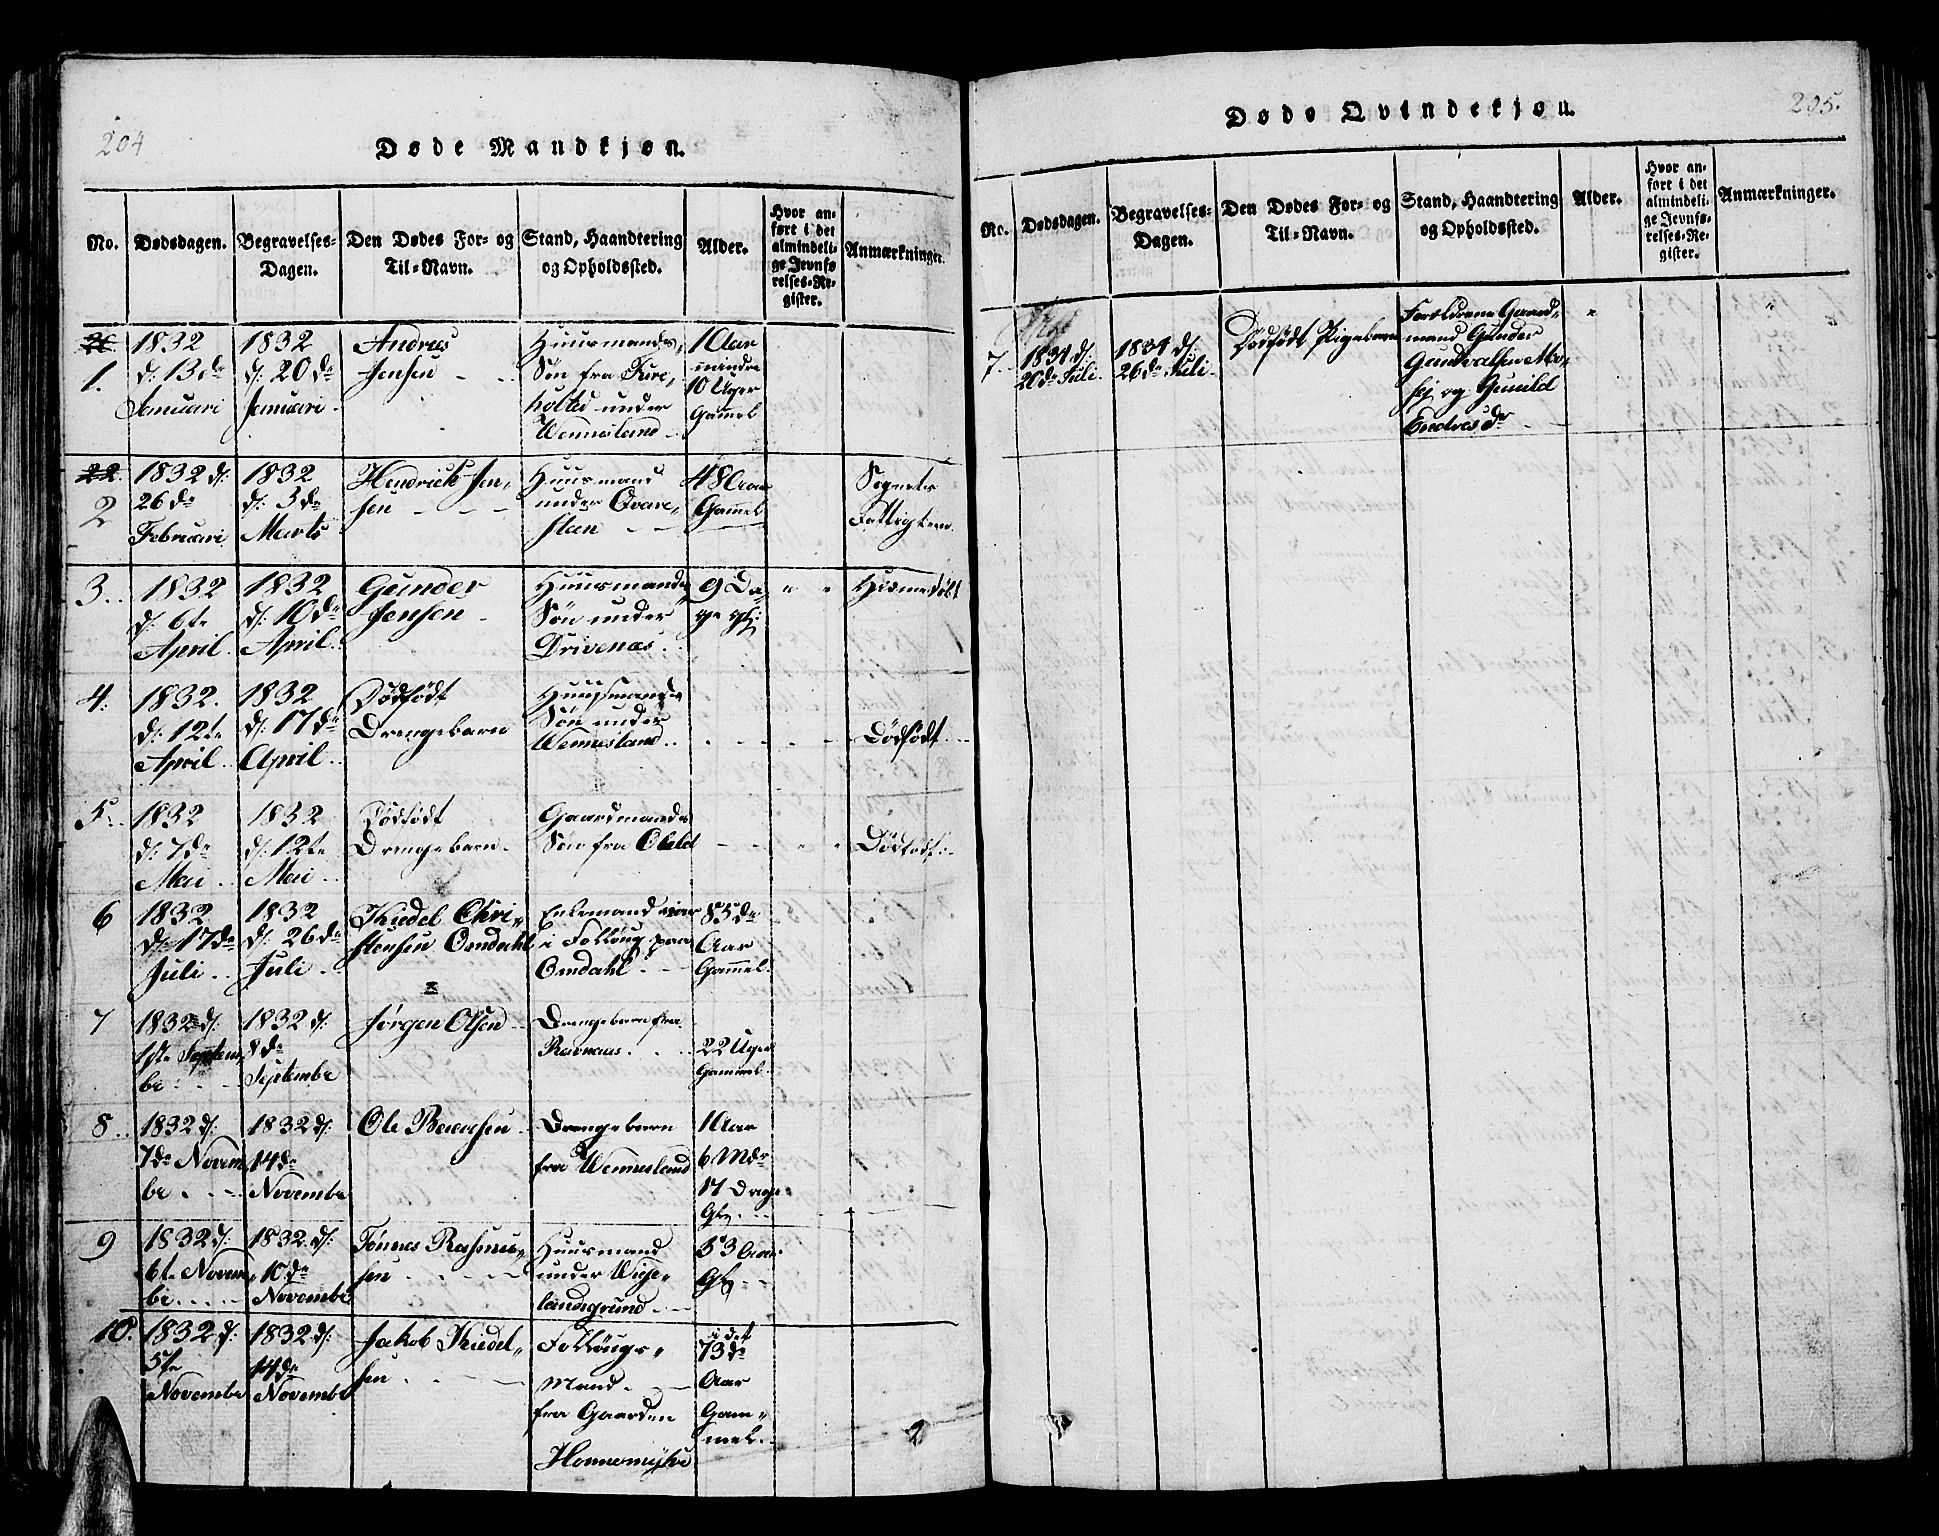 204
Døde Mandkjøn.
No.
Dødsdagen.
Begravelses-
Dagen.
Den Dødes For- og
Til-Navn.
Stand, Haandtering
og Opholdssted.
Alder.
Hvor an-
ført i det
almindeli-
ge Jevnfø-
relses-Re-
gister.
Anmærkninger.
1.
1832
d: 13de
Januari
1832
d: 20de
Januari
Andreas
Jensen
Huusmands
Søn fra
under
Wennesland
1 Aar
mindre
10 Uger
Gammel
22.
2
1832 d:
26de
Februari
1832
d: 3de
Marts
Hendrich Jen„
sen
Huusmand
under Qvare„
sten
48 Aar
Gammel
Fattiglem
3.
1832
d: 6te
April
1832
d: 10de
April
Gunder
Jensen
Huusmands
Søn under
Drivenæs
9 Da„
ge gl:
Hiemedøbt
4.
1832.
d: 12te
April
1832
d: 17de
April
Dödfödt
Drengebarn
Huusmands
Søn under
Wennesland
Dödfödt
5.
1832
d: 7de
Mai
1832
d: 12te
Mai
Dödfödt
Drengebarn
Gaardmands
Søn fra
Dödfödt
6
1832
d: 17de
Juli
1832
d: 26de
Juli
Kiedel Chri„
stensen Omdahl
Enkemand var
i Follöug paa
Omdahl
85de
Aar
Gammel
7
1832 d:
1ste Septem„
be
1832 d:
8de
Septembe
Jörgen Olsen
Drengebarn fra
Ravnaas
22 Uger
Gammel
8
1832 d:
7de Novem
be
1832 d:
14de
Novembe
Ole
Drengebarn
fra Wennesland
1 Aar
6 Mdr
17 Dage
Gl.
9
1832 d:
6te Novem
be
1832 d:
10de
Novembe
Tönnes Rasmus„
sen
Huusmand
under
landsgrund
53 Aar
Gl.
10.
1832 d:
5te
Novembe
1832 d:
14de
Novembe
Jakob Kiedel„
sen
Follöugs„
Mand
fra Gaarden
Honnemyhre
i det
73de
Aar
Gam„
mel.
205.
Døde Qvindekjøn.
No.
Dødsdagen.
Begravelses-
Dagen.
Den Dødes For- og
Til-Navn.
Stand, Haandtering
og Opholdssted.
Alder.
Hvor an-
ført i det
almindeli-
ge Jevnfø-
relses-Re-
gister.
Anmærkninger.
7.
1834 d:
20de Juli
1834 d:
26de Juli
Dödfödt Pigebarn
Forældrene Gaard„
mand Gunder
Gundvalsen Mo„
sej og Gunild
Endresdr